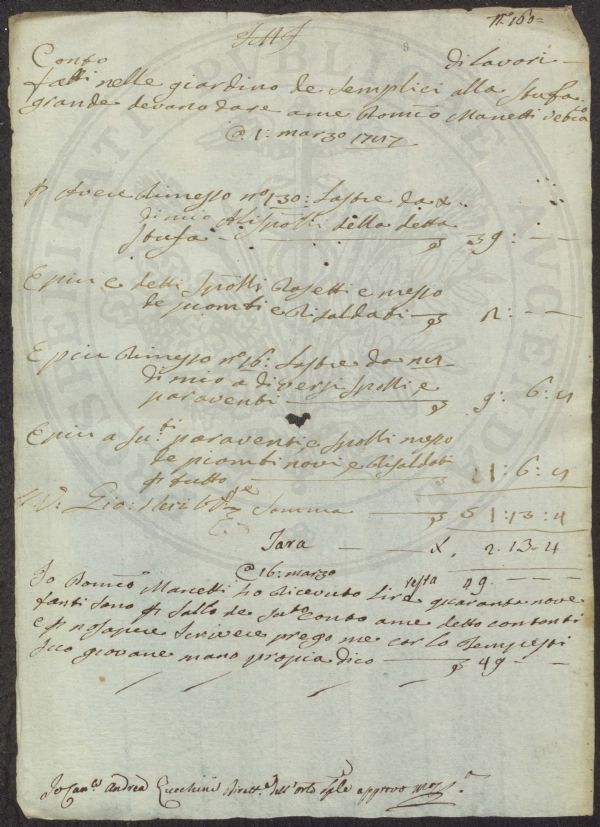 N.º 160=
Conto di Lavori
fatti nelle giardino de Semplici alla Stufa
grande devano dare a me Dom:co Manetti Vetraio
@ 1: marzo
P Avere Rimesso nº 130: Lastre da
di mio alli spolli della detta
Stufa 39: — —
E piu e detti Spolli e messo
de piombi e Risaldati — —
E piu Rimesso nº 16: Lastre da
di mio a diversi spolli e
paraventi 9: 6: 4
E piu a su.ti paraventi e spolli messo
de piombi novi e Risaldati
P tutto 1: 6: 4
Gio: Somma 51: 13: 4
Tara 2. 13. 4
@ 16: marzo
resta 49 — —
Io Dom:co Manetti ho Ricevuto Lire quaranta nove
tanti sono P saldo de su:to conto a me detto contanti
e P no sapere scrivere prego me Carlo Tempesti
suo giovane mano propria dico 49 — —
Io Can.co Andrea Cucchini dirett.e dell'orto approvo